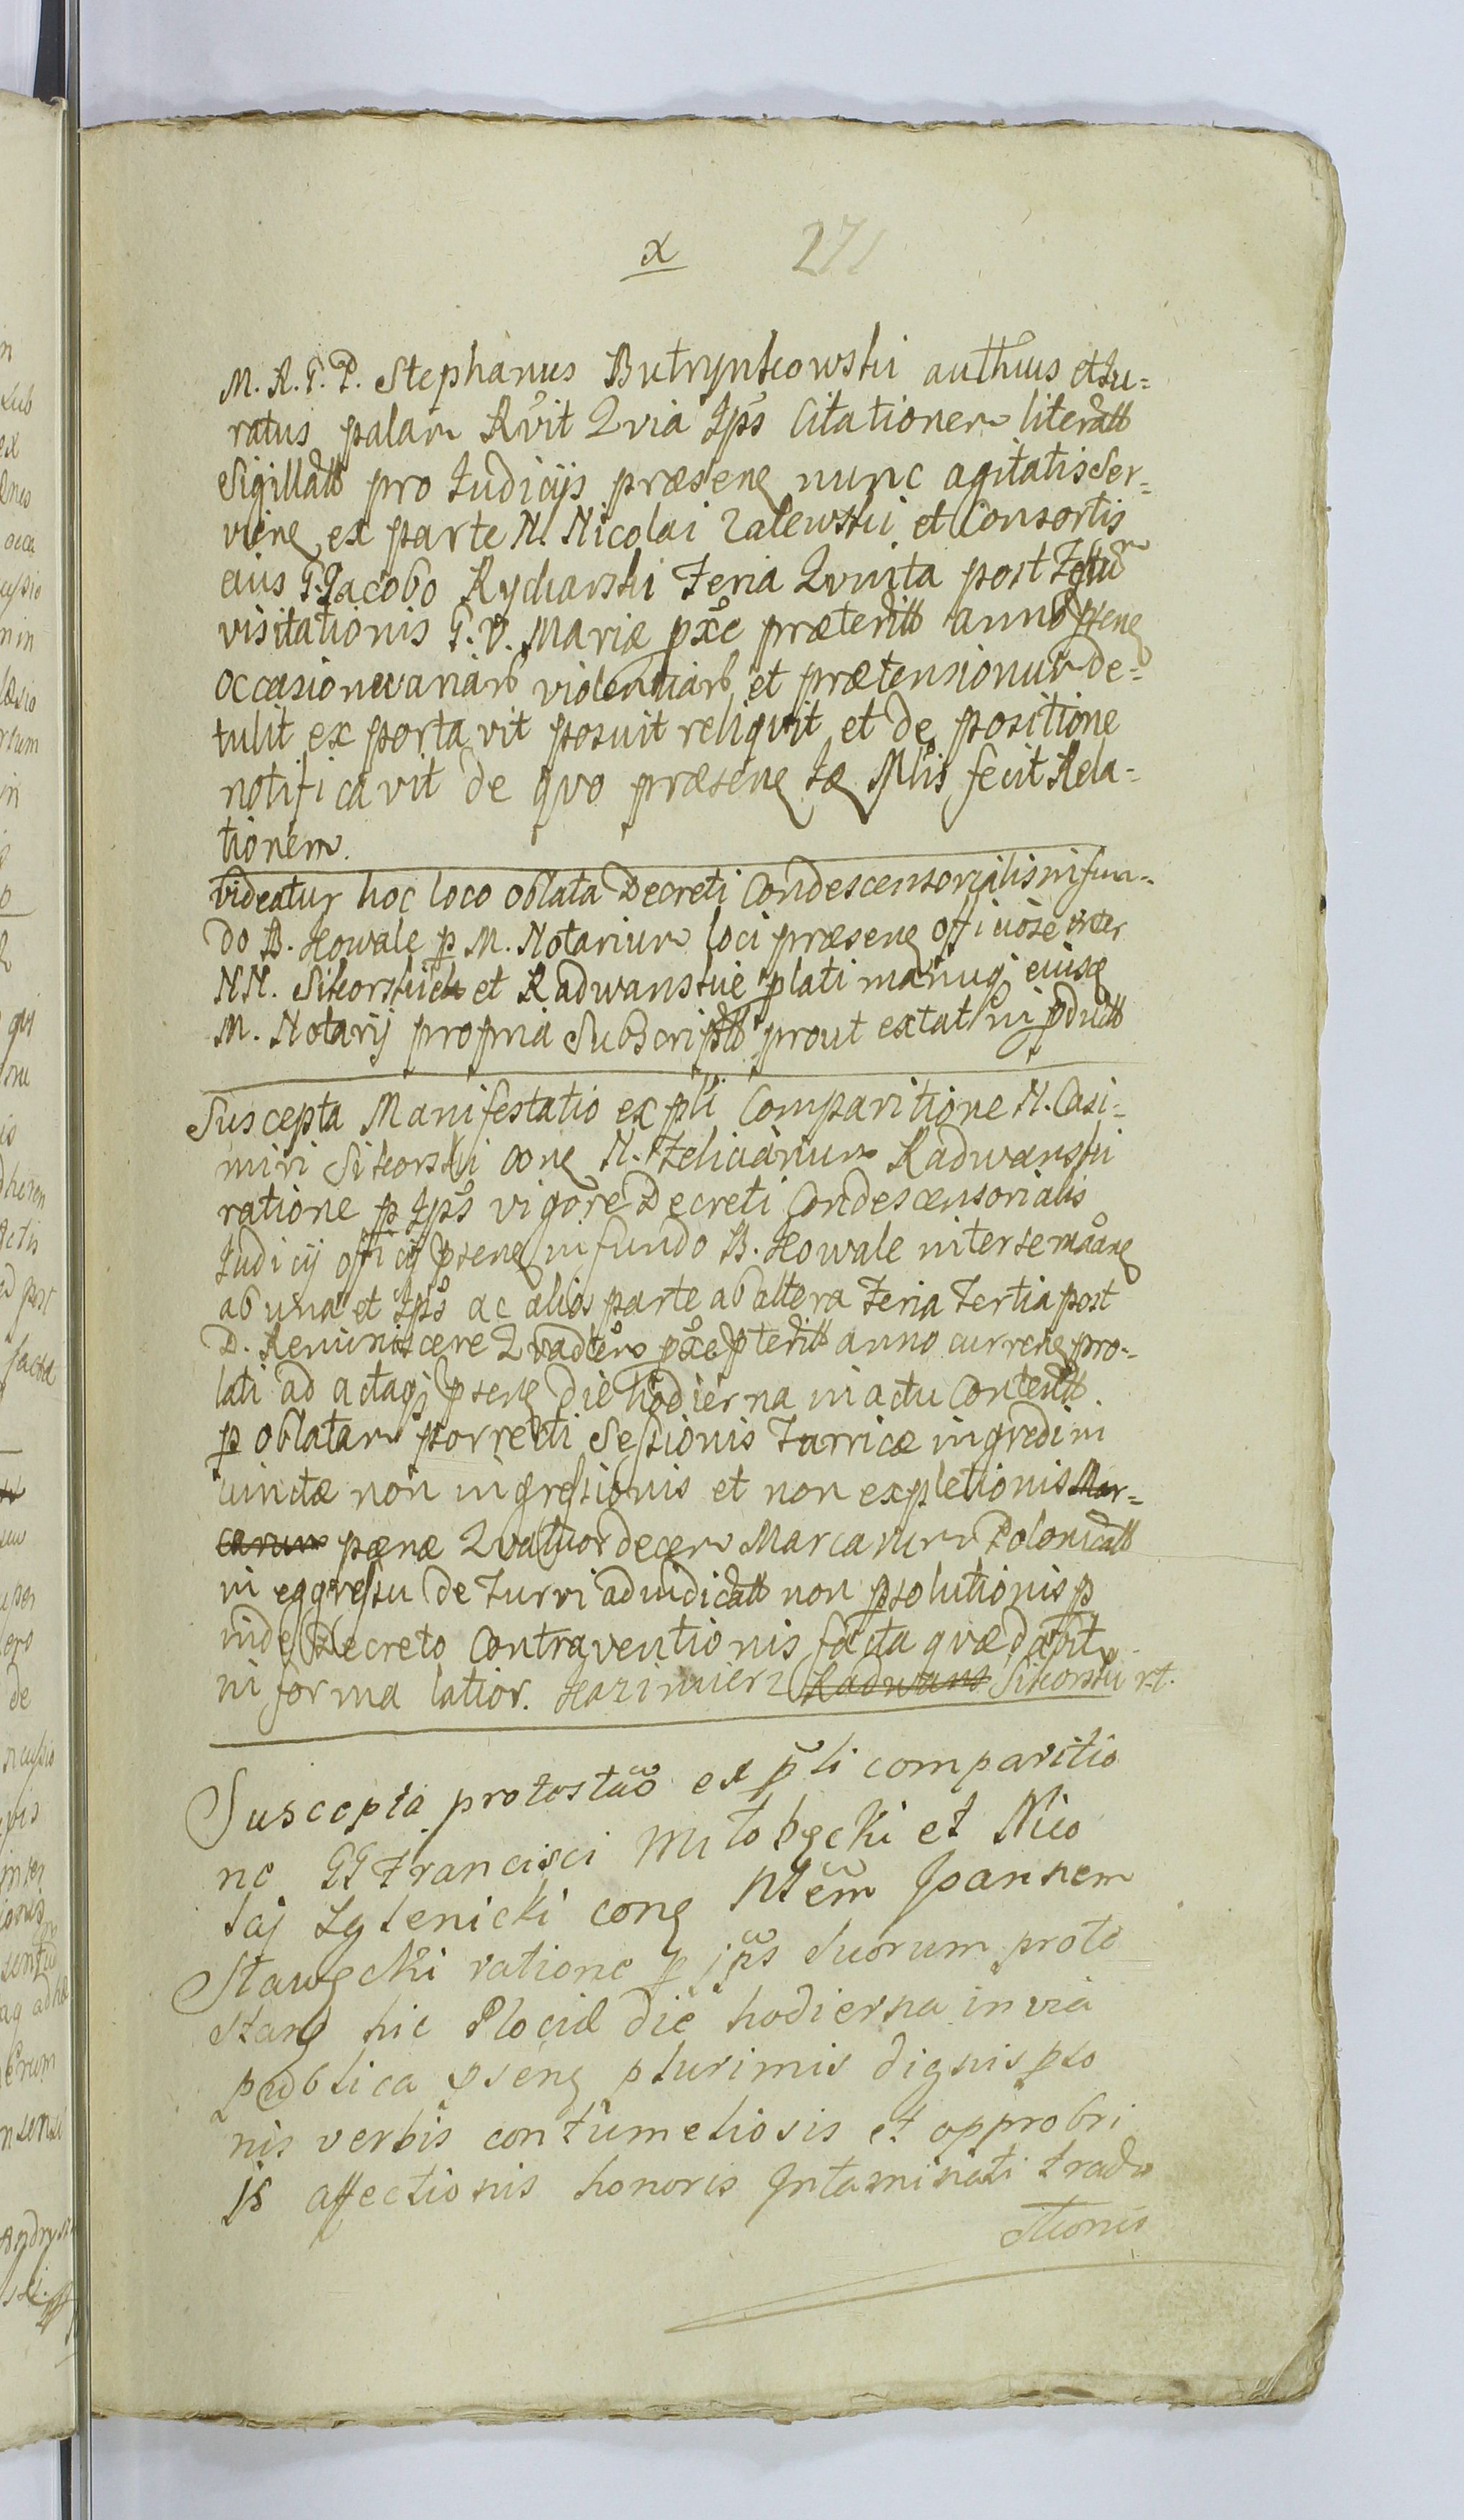 x 271
M. R. G. P. Stephanus Butrynkowski authius et Ju-
ratus palam Rvit Qvia Ips Citationem literatt
Sigillatt pro Judicijs præsene nunc agitatis Ser-
viene ex parte N. Nicolai Zalewski et Consortis
eius G. Jacobo Rycharski Feria Qvinta post Festu
visitationis G. V. Mariæ pxe præteritt anno psene
occasione variar violentiar et prætensionum de-
tulit ex porta vit posuit reliqvit et de positione
notificavit de qvo præsene Mlis fecit Rela-
tionem.
Videatur hoc loco oblata Decreti Condescensorialis in fun-
do B. Kowale p M. Notarium loci præsene officiose inter
NN. Sikorskich et Radwanskie plati manuq eiusq
M. Notarij propria Subscriptt prout extat in pductt
Suscepta Manifestatio ex pli Comparitione N. Casi-
miri Sikorski cone N. Felicianum Radwanski
ratione p Ips vigore Decreti Condescensorialis
Judicij officij psene in fundo B. Kowale inter se maane
ab una et Ips ac alios parte ab altera Feria Tertia post
D. Reminiscere Qvadter pxe pteritt anno currene pro-
lati ad actaqz psene die hodierna in actu Contentt
p oblatam porrecti Sessionis Turricæ ingredi in
iunctæ non ingressionis et non expletionis Mar-
carum pænæ Qvatuordecem Marcarum Polonicatt
in eggressu de Turri adiudicatt non psolutionis p
inde Decreto Contraventionis facta qvæ dabit
in forma latior. Kazimierz Radwans Sikorski rt.
Suscepta protestao ex pli comparitio
ne GG Francisci Miłobęcki et Nico
laj Zglenicki cone Ntem Joannem
Stawęcki ratione p jps Suorum prote
stane hic Plociæ die hodierna in via
publica psene plurimis dignis pso
nis verbis contumeliosis et opprobri
js affectionis honoris Intaminati tradu
ctionis